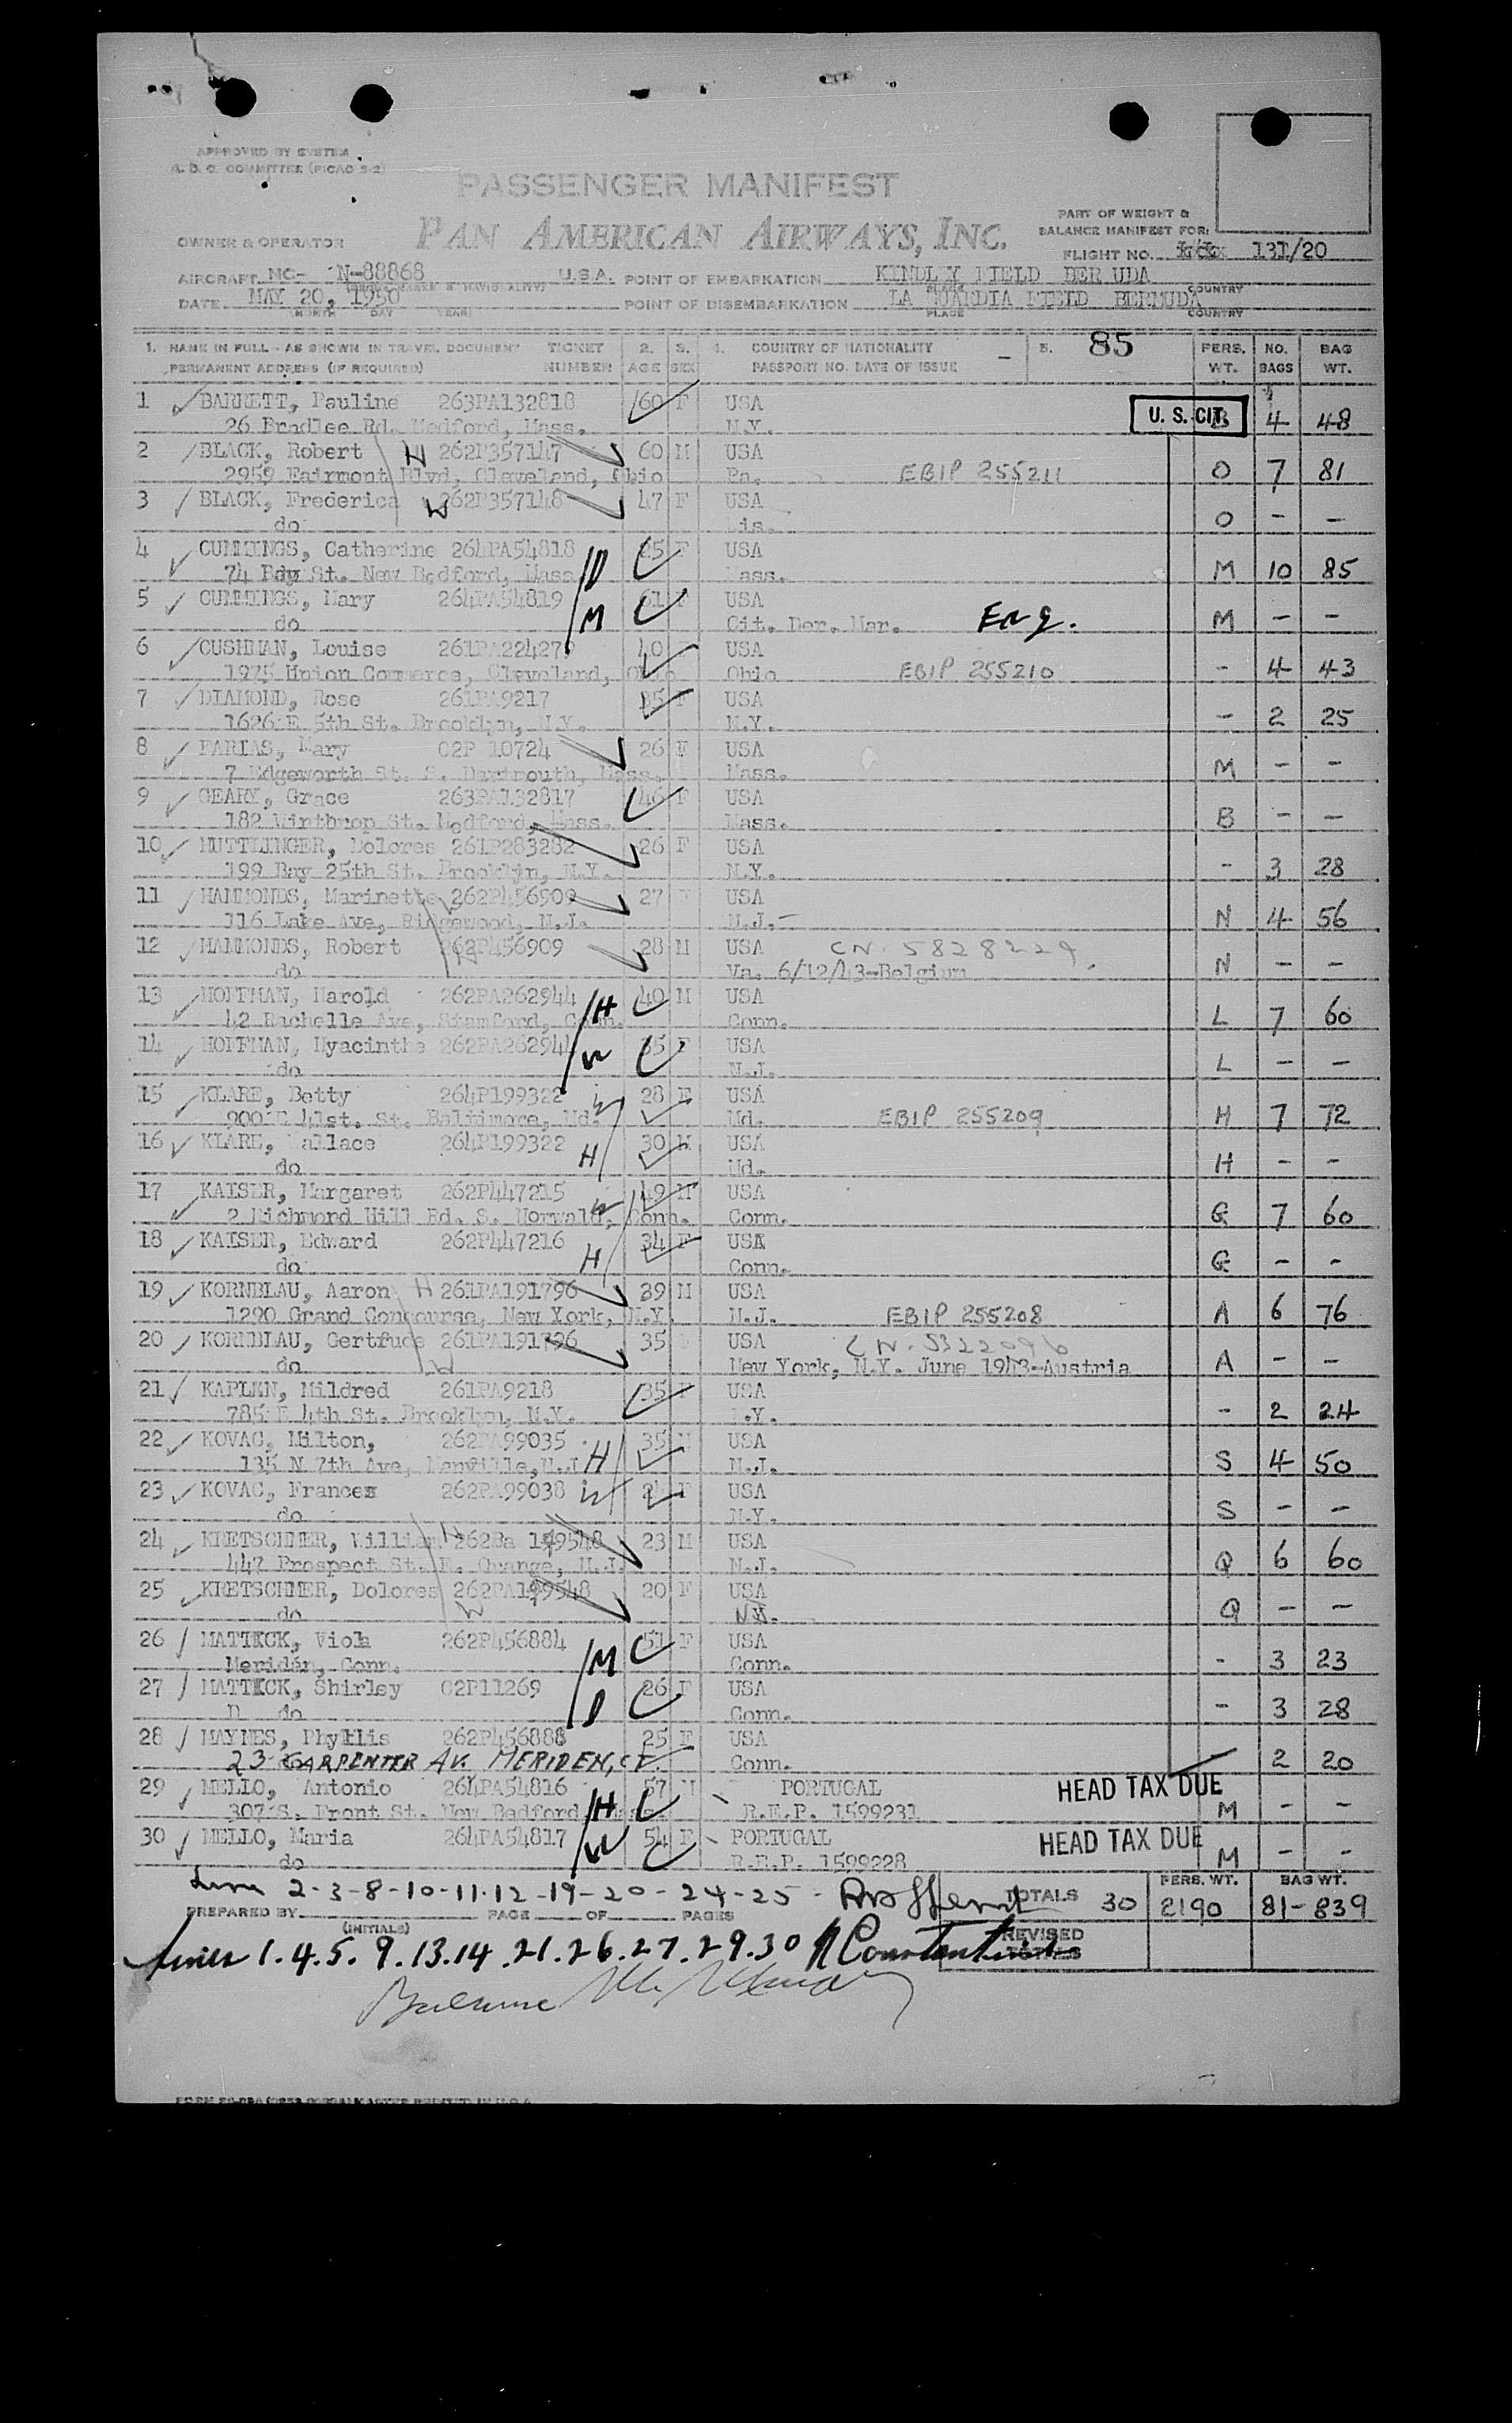 APPROVED BY SYSTEM
A. D. C. COMMITTEE (PICAO S-2)
PASSENGER MANIFEST
PAN AMERICAN AIRWAYS, INC.
PART OF WEIGHT &
BALANCE MANIFEST FOR:
OWNER & OPERATOR
FLIGHT NO. 131/20
AIRCRAFT NC- N-88868 U.S.A. POINT OF EMBARKATION KINDL Y FIELD BER UDA
PLACE COUNTRY
DATE MAY 20, 1950 POINT OF DISEMBARKATION LA GUARDIA FIELD BERMUDA
(MONTH DAY YEAR) PLACE COUNTRY
1. NAME IN FULL - AS SHOWN IN TRAVEL DOCUMENT TICKET 2. 3. 4. COUNTRY OF NATIONALITY 5. 85 PERS. NO. BAG
PERMANENT ADDRESS (IF REQUIRED) NUMBER AGE SEX PASSPORT NO. DATE OF ISSUE WT. BAGS WT.
1 BARRETT, Pauline 263PA132818 60 F USA
26 Bradlee Rd. Medford, Mass. N.Y. U. S. CIT. B 4 48
2 BLACK, Robert H 262P357147 60 M USA
2959 Fairmont Blvd, Cleveland, Ohio Pa. EBIP 255211 O 7 81
3 BLACK, Frederica W 262P357148 47 F USA
do Wis. O - -
4 CUMMINGS, Catherine 264PA54818 25 F USA
74 Bay St. New Bedford, Mass D Mass. M 10 85
5 CUMMINGS, Mary 264PA54819 61 F USA
do M Cit. Der. Mar. Eng. M - -
6 CUSHMAN, Louise 261PA224279 40 USA
1975 Union Commerce, Cleveland, Ohio Ohio EBIP 255210 - 4 43
7 DIAMOND, Rose 261PA9217 35 F USA
1626 E 5th St. Brooklyn, N.Y. N.Y. - 2 25
8 FARIAS, Mary 02P 10724 26 F USA
7 Edgeworth St. S. Dartmouth, Mass. Mass. M - -
9 GEARY, Grace 263PA132817 46 F USA
182 Winthrop St. Medford, Mass. Mass. B - -
10 HUTTLINGER, Dolores 261P283282 26 F USA
199 Bay 25th St. Brooklyn, N.Y. N.Y. - 3 28
11 HAMMONDS, Marinette 262P456909 27 F USA
116 Lake Ave, Ridgewood, N.J. N.J.- N 4 56
12 HAMMONDS, Robert 262P456909 28 M USA CN. 5828229
do Va. 6/12/43-Belgium N - -
13 HOFFMAN, Harold 262PA262944 H 40 M USA
42 Rachelle Ave, Stamford, Conn. Conn. L 7 60
14 HOFFMAN, Hyacinthe 262PA262944 W 35 F USA
do N.J. L - -
15 KLARE, Betty 264P199322 W 28 F USA
900 E 41st. St. Baltimore, Md. Md. EBIP 255209 H 7 72
16 KLARE, Wallace 264P199322 H 30 M USA
do Md. H - -
17 KAISER, Margaret 262P447215 49 M USA
2 Richmond Hill Rd. S. Norwald, Conn. W Conn. G 7 60
18 KAISER, Edward 262P447216 34 F USA
do H Conn. G - -
19 KORNBLAU, Aaron H 261PA191796 39 M USA
1290 Grand Concourse, New York, N.Y. N.J. EBIP 255208 A 6 76
20 KORNBLAU, Gertrude 261PA191796 35 F USA CN. 5322096
do W New York, N.Y. June 1943-Austria A - -
21 KAPLAN, Mildred 261PA9218 35 F USA
785 E 4th St. Brooklyn, N.Y. N.Y. - 2 24
22 KOVAC, Milton, 262PA99035 35 M USA
135 N 7th Ave, Manville, N.J H N.J. S 4 50
23 KOVAC, Frances 262PA99038 W F USA
do N.Y. S - -
24 KRETSCHMER, William H 262Pa 199548 23 M USA
447 Prospect St. E. Orange, N.J. N.J. Q 6 60
25 KRETSCHMER, Dolores 262PA199548 20 F USA
do W Q - -
26 MATTICK, Viola 262P456884 51 F USA
Meriden, Conn. M Conn. - 3 23
27 MATTICK, Shirley 02P11269 26 F USA
D do D Conn. - 3 28
28 MAYNES, Phyllis 262P456888 25 F USA
23 CARPENTER AV. MERIDEN, CT. Conn. 2 20
29 MELLO, Antonio 264PA54816 57 M PORTUGAL HEAD TAX DUE
307 S. Front St. New Bedford, Mass. H R.E.P. 1599231 M - -
30 MELLO, Maria 264PA54817 W 54 F PORTUGAL HEAD TAX DUE
do R.E.P. 1599228 M - -
2-3-8-10-11-12-19-20-24-25 TOTALS 30 PERS. WT. 2190 BAG WT. 81-839
PREPARED BY (INITIALS) PAGE OF PAGES
Lines 1.4.5.9.13.14.21.26.27.29.30 REVISED TOTALS